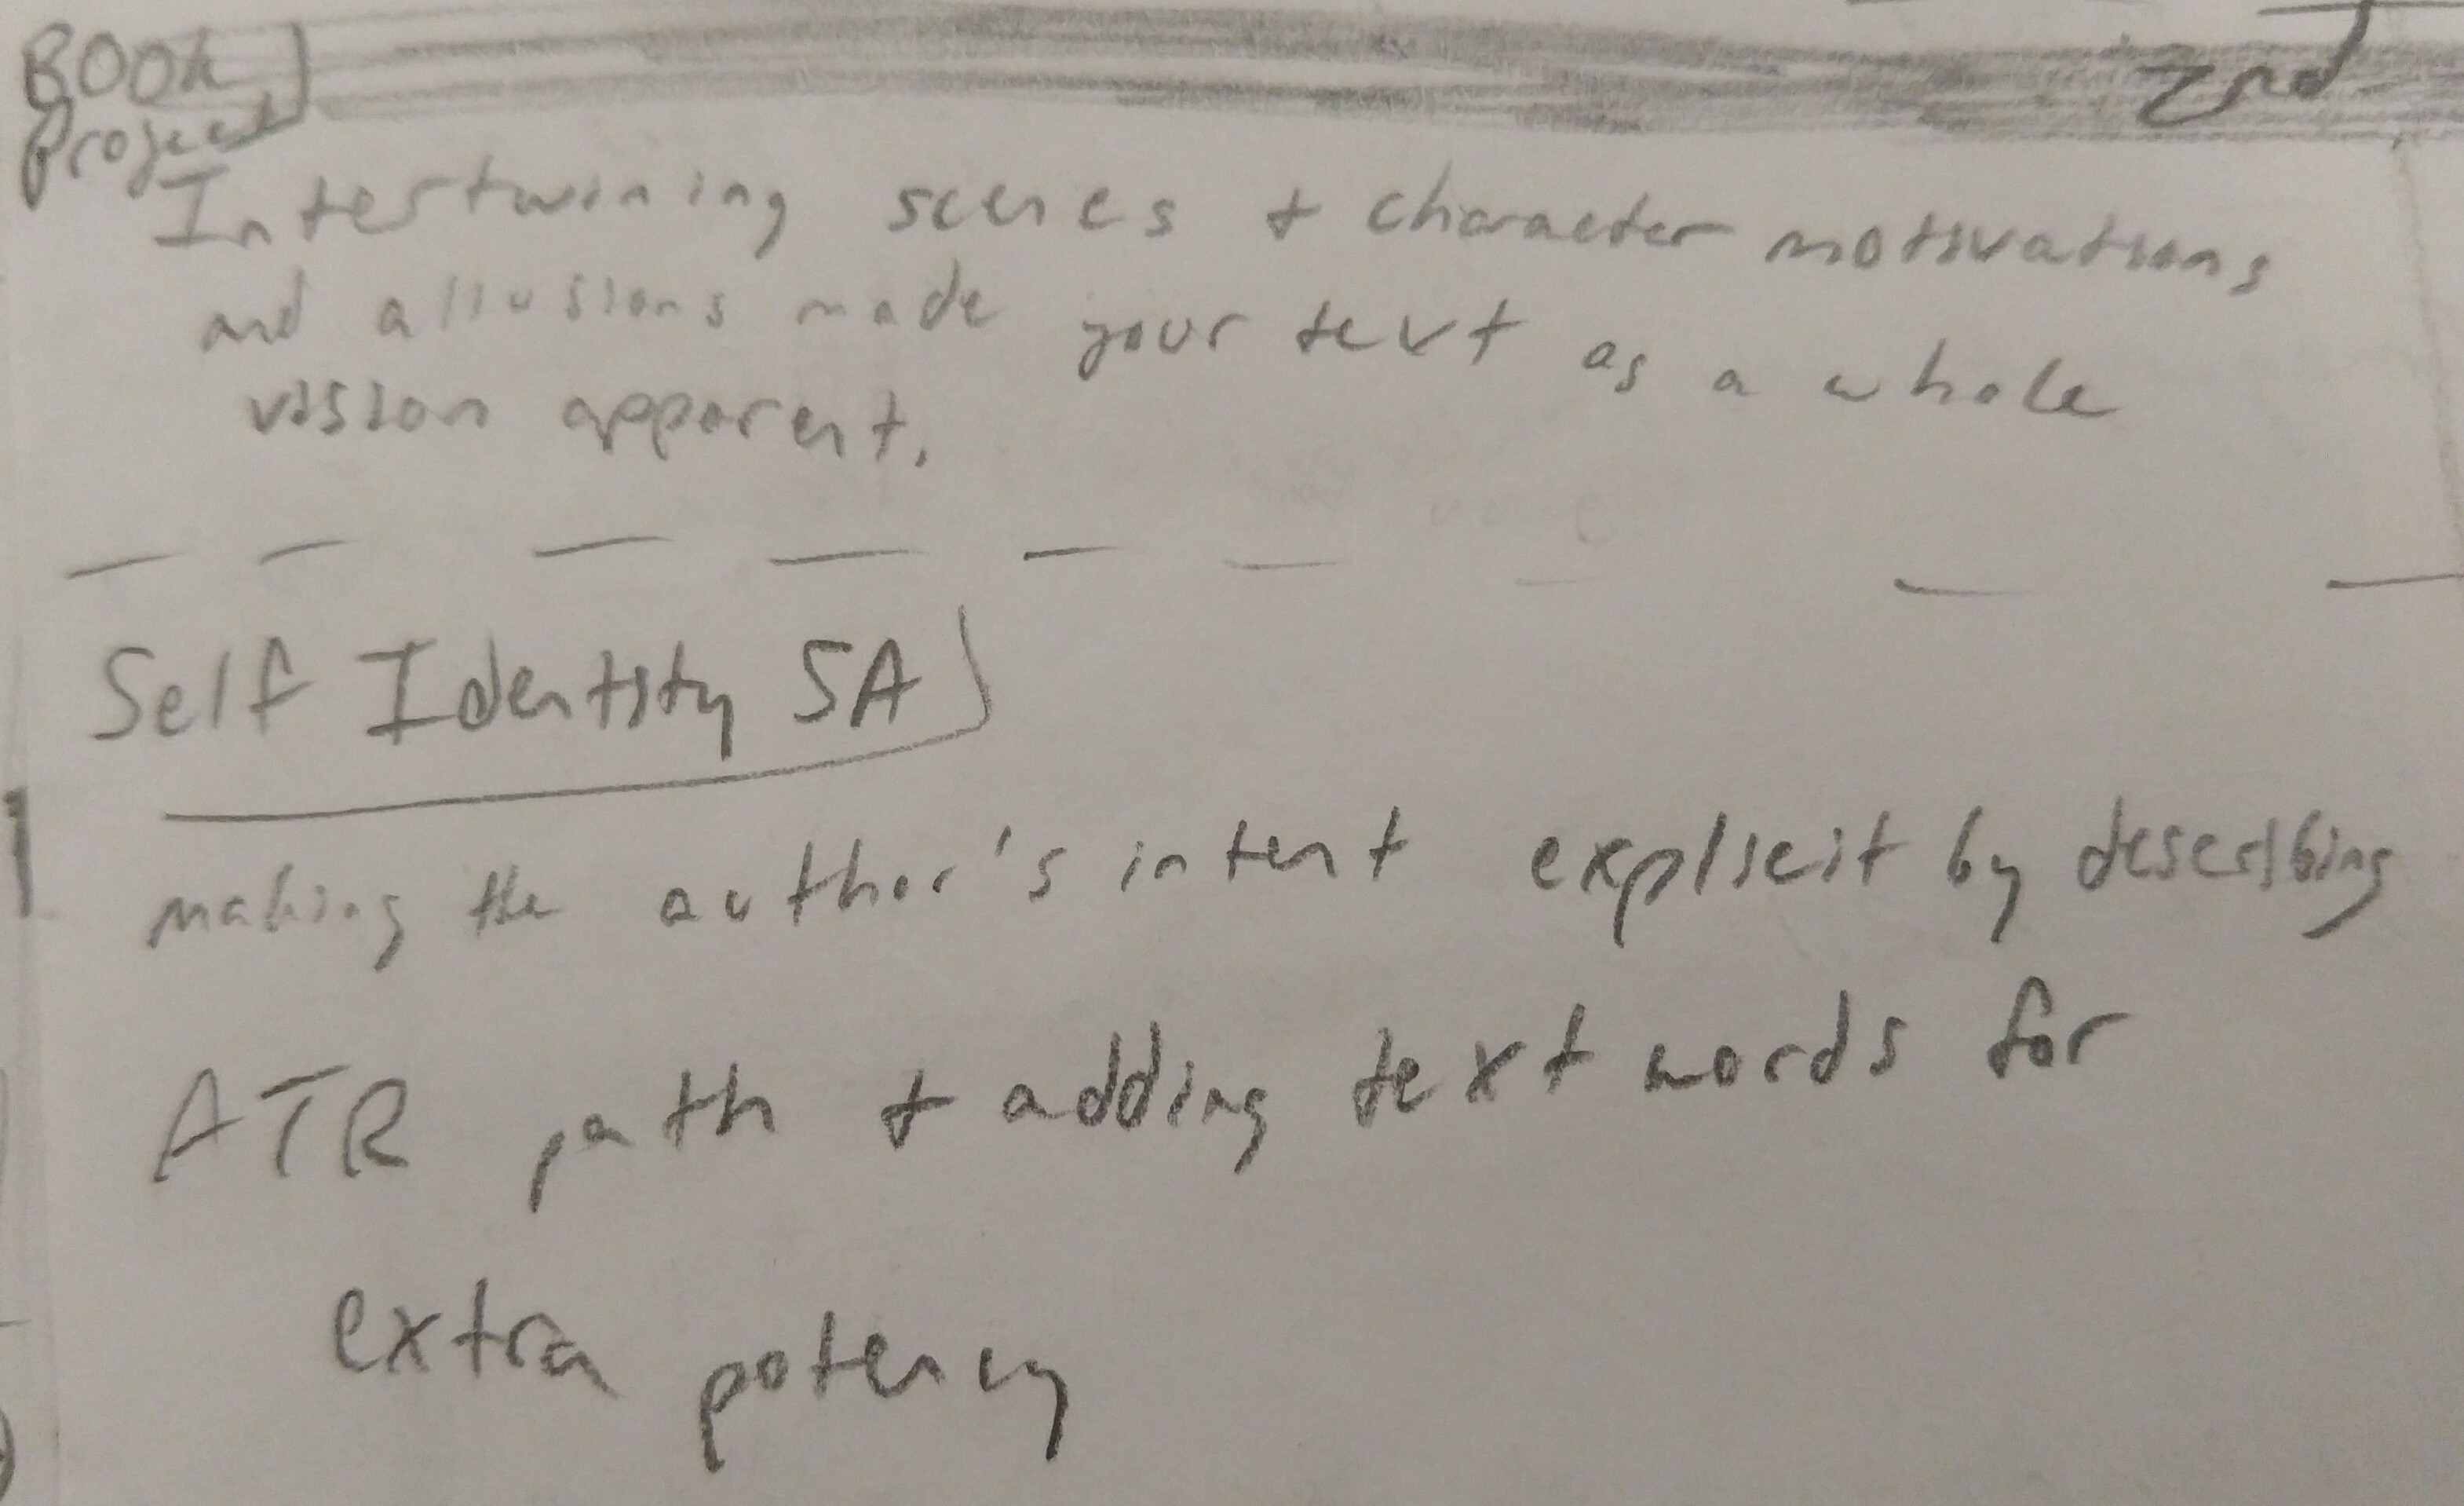 BOOk
Project
2nd
Intertwining scenes + character motivations
and allusions made your text as a whole
vision apparent.
Self Identity SA
making the author's intent explicit by describing
ATR path + adding text words for
extra potency